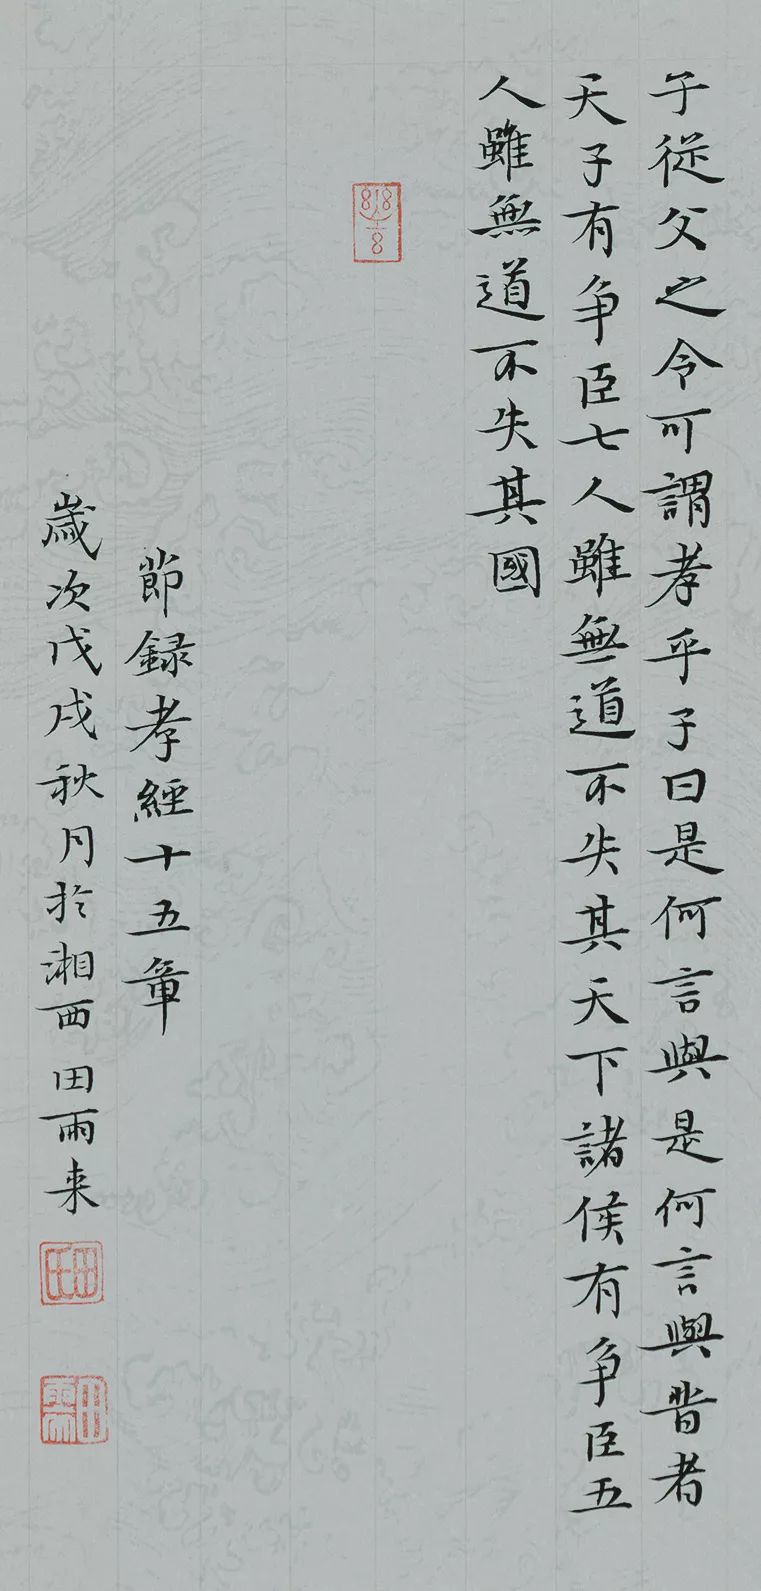 子從父之令可謂孝乎子曰是何言與是何言與昔者
天子有争臣七人雖無道不失其天下諸侯有争臣五
人雖無道不失其國
節録孝經十五章
歲次戊戌秋月於湘西田雨来
田氏